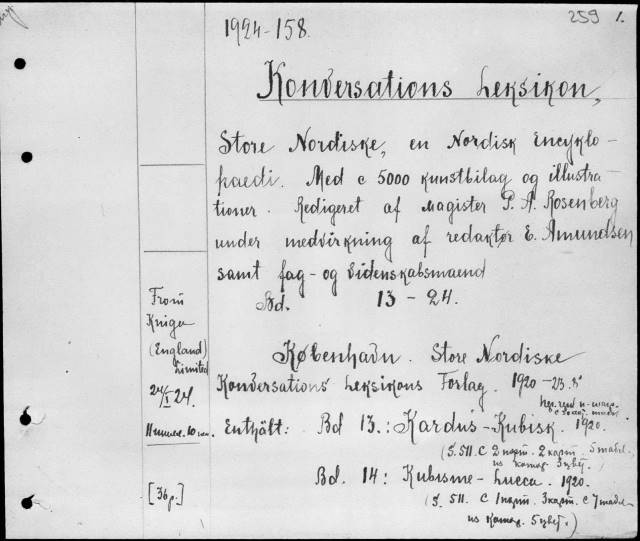 259 1.
1924-158.
Konversations Leksikon,
Store Nordiske, en Nordisk Encyklo-
paedi. Med c 5000 kunstbilag og illustra-
tioner. Redigeret af magister P. A. Rosenberg
under medvirkning af redaktør E. Amundsen
samt fag- og videnskabsmaend
Bd. 13-24.
From
Kniga
(England)
Limited
24/I 24.
[36p.]
København. Store Nordiske
Konversations Leksikons Forlag. 1920-23. 8°
Enthält: Bd 13.: Kardus-Kubisk. 1920.
(S. 511. С 2 порт. 2 карт. 5 табл.
из котор. 3 цвет.)
Bd. 14: Kubisme-Lucca. 1920.
(S. 511. С 1 порт. 3 карт. с 7 табл.
из котор. 5 цвет.)